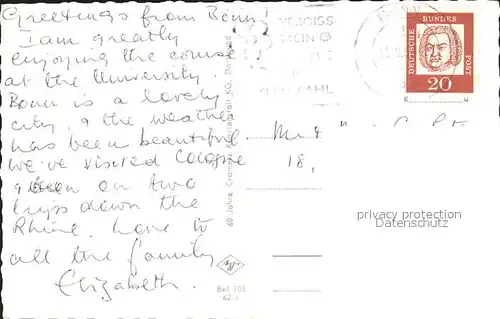 Greetings from Bonn!
I am greatly
enjoying the course
at the University.
Bonn is a lovely
city, & the weather
has been beautiful
we've visited Cologne
& been on two
trips down the
Rhine. Love to
all the family
Elizabeth.
VERGISS
MEIN
BONN
DEUTSCHE
BUNDES
POST
20
60 Jahre
Mr &
18,
privacy protection
Datenschutz
Best 101